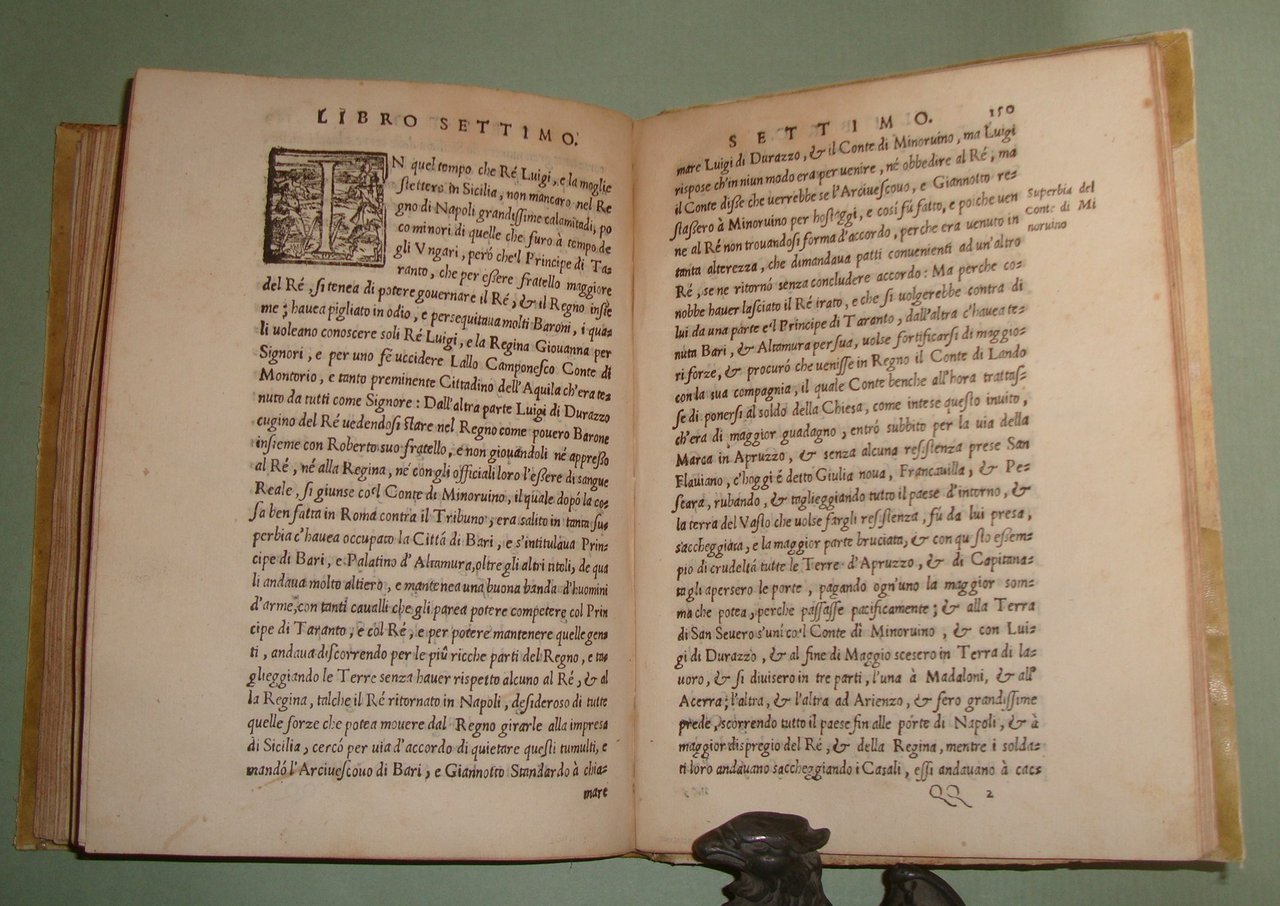 LIBRO SETTIMO.
IN quel tempo che Ré Luigi, e la moglie
stettero in Sicilia, non mancaro nel Re
gno di Napoli grandissime calamitadi, po
co minori di quelle che furo à tempo de
gli Vngari, peró che'l Principe di Ta-
ranto, che per essere fratello maggiore
del Ré, si tenea di potere gouernare il Ré, & il Regno insie
me; hauea pigliato in odio, e persequitaua molti Baroni, i qua-
li uoleano conoscere soli Ré Luigi, e la Regina Giouanna per
Signori, e per uno fé uccidere Lallo Camponesco Conte di
Montorio, e tanto preminente Cittadino dell'Aquila ch'era te-
nuto da tutti come Signore: Dall'altra parte Luigi di Durazzo
cugino del Ré uedendosi stare nel Regno come pouero Barone
insieme con Roberto suo fratello, e non giouandoli né appresso
al Ré, né alla Regina, né con gli officiali loro l'essere di sangue
Reale, si giunse co'l Conte di Minoruino, il quale dopó la co-
sa ben fatta in Roma contra il Tribuno, era salito in tanta su-
perbia c'hauea occupato la Cittá di Bari, e s'intitulaua Prin-
cipe di Bari, e Palatino d'Altamura, oltre gli altri titoli, de qua
li andaua molto altiero, e mantenea una buona banda d'huomini
d'arme, con tanti caualli che gli parea potere competere col Prin
cipe di Taranto, e col Ré, e per potere mantenere quelle gen
ti, andaua discorrendo per le piú ricche parti del Regno, e ta
glieggiando le Terre senza hauer rispetto alcuno al Ré, & al
la Regina, talche il Ré ritornato in Napoli, desideroso di tutte
quelle forze che potea mouere dal Regno girarle alla impresa
di Sicilia, cercó per uia d'accordo di quietare questi tumulti, e
mandó l'Arciuescouo di Bari, e Giannotto Standardo à chia-
mare
SETTIMO. 150
mare Luigi di Durazzo, & il Conte di Minoruino, ma Luigi
rispose ch'in niun modo era per venire, né obbedire al Ré, ma
il Conte disse che uerrebbe se l'Arciuescouo, e Giannotto re-
stassero à Minoruino per hostaggi, e cosí fú fatto, e poi che uen
ne al Ré non trouandosi forma d'accordo, perche era venuto in
tanta alterezza, che dimandaua patti conuenienti ad un'altro
Ré, se ne ritornó senza concludere accordo: Ma perche co-
nobbe hauer lasciato il Ré irato, e che si uolgerebbe contra di
lui da una parte e'l Principe di Taranto, dall'altra c'hauea te-
nuta Bari, & Altamura per sua, uolse fortificarsi di maggio-
ri forze, & procuró che uenisse in Regno il Conte di Lando
con la sua compagnia, il quale Conte benche all'hora trattas-
se di ponersi al soldo della Chiesa, come intese questo inuito,
ch'era di maggior guadagno, entró subbito per la uia della
Marca in Apruzzo, & senza alcuna resistenza prese San
Flauiano, c'hoggi é detto Giulia noua, Francauilla, & Pe-
scara, rubando, & taglieggiando tutto il paese d'intorno, &
la terra del Vasto che uolse fargli resistenza, fú da lui presa,
saccheggiata, e la maggior parte bruciata, & con qu sto essem-
pio di crudeltá tutte le Terre d'Apruzzo, & di Capitana-
ta gli apersero le porte, pagando ogn'uno la maggior som-
ma che potea, perche passasse pacificamente; & alla Terra
di San Seuero s'uní co'l Conte di Minoruino, & con Lui-
gi di Durazzo, & al fine di Maggio scesero in Terra di la-
uoro, & si diuisero in tre parti, l'una à Madaloni, & all'
Acerra; l'altra, & l'altra ad Arienzo, & fero grandissime
prede, scorrendo tutto il paese fin alle porte di Napoli, & à
maggior dispregio del Ré, & della Regina, mentre i solda-
ti loro andauano saccheggiando i Casali, essi andauano à cac-
QQ 2
Superbia del
Conte di Mi
noruino